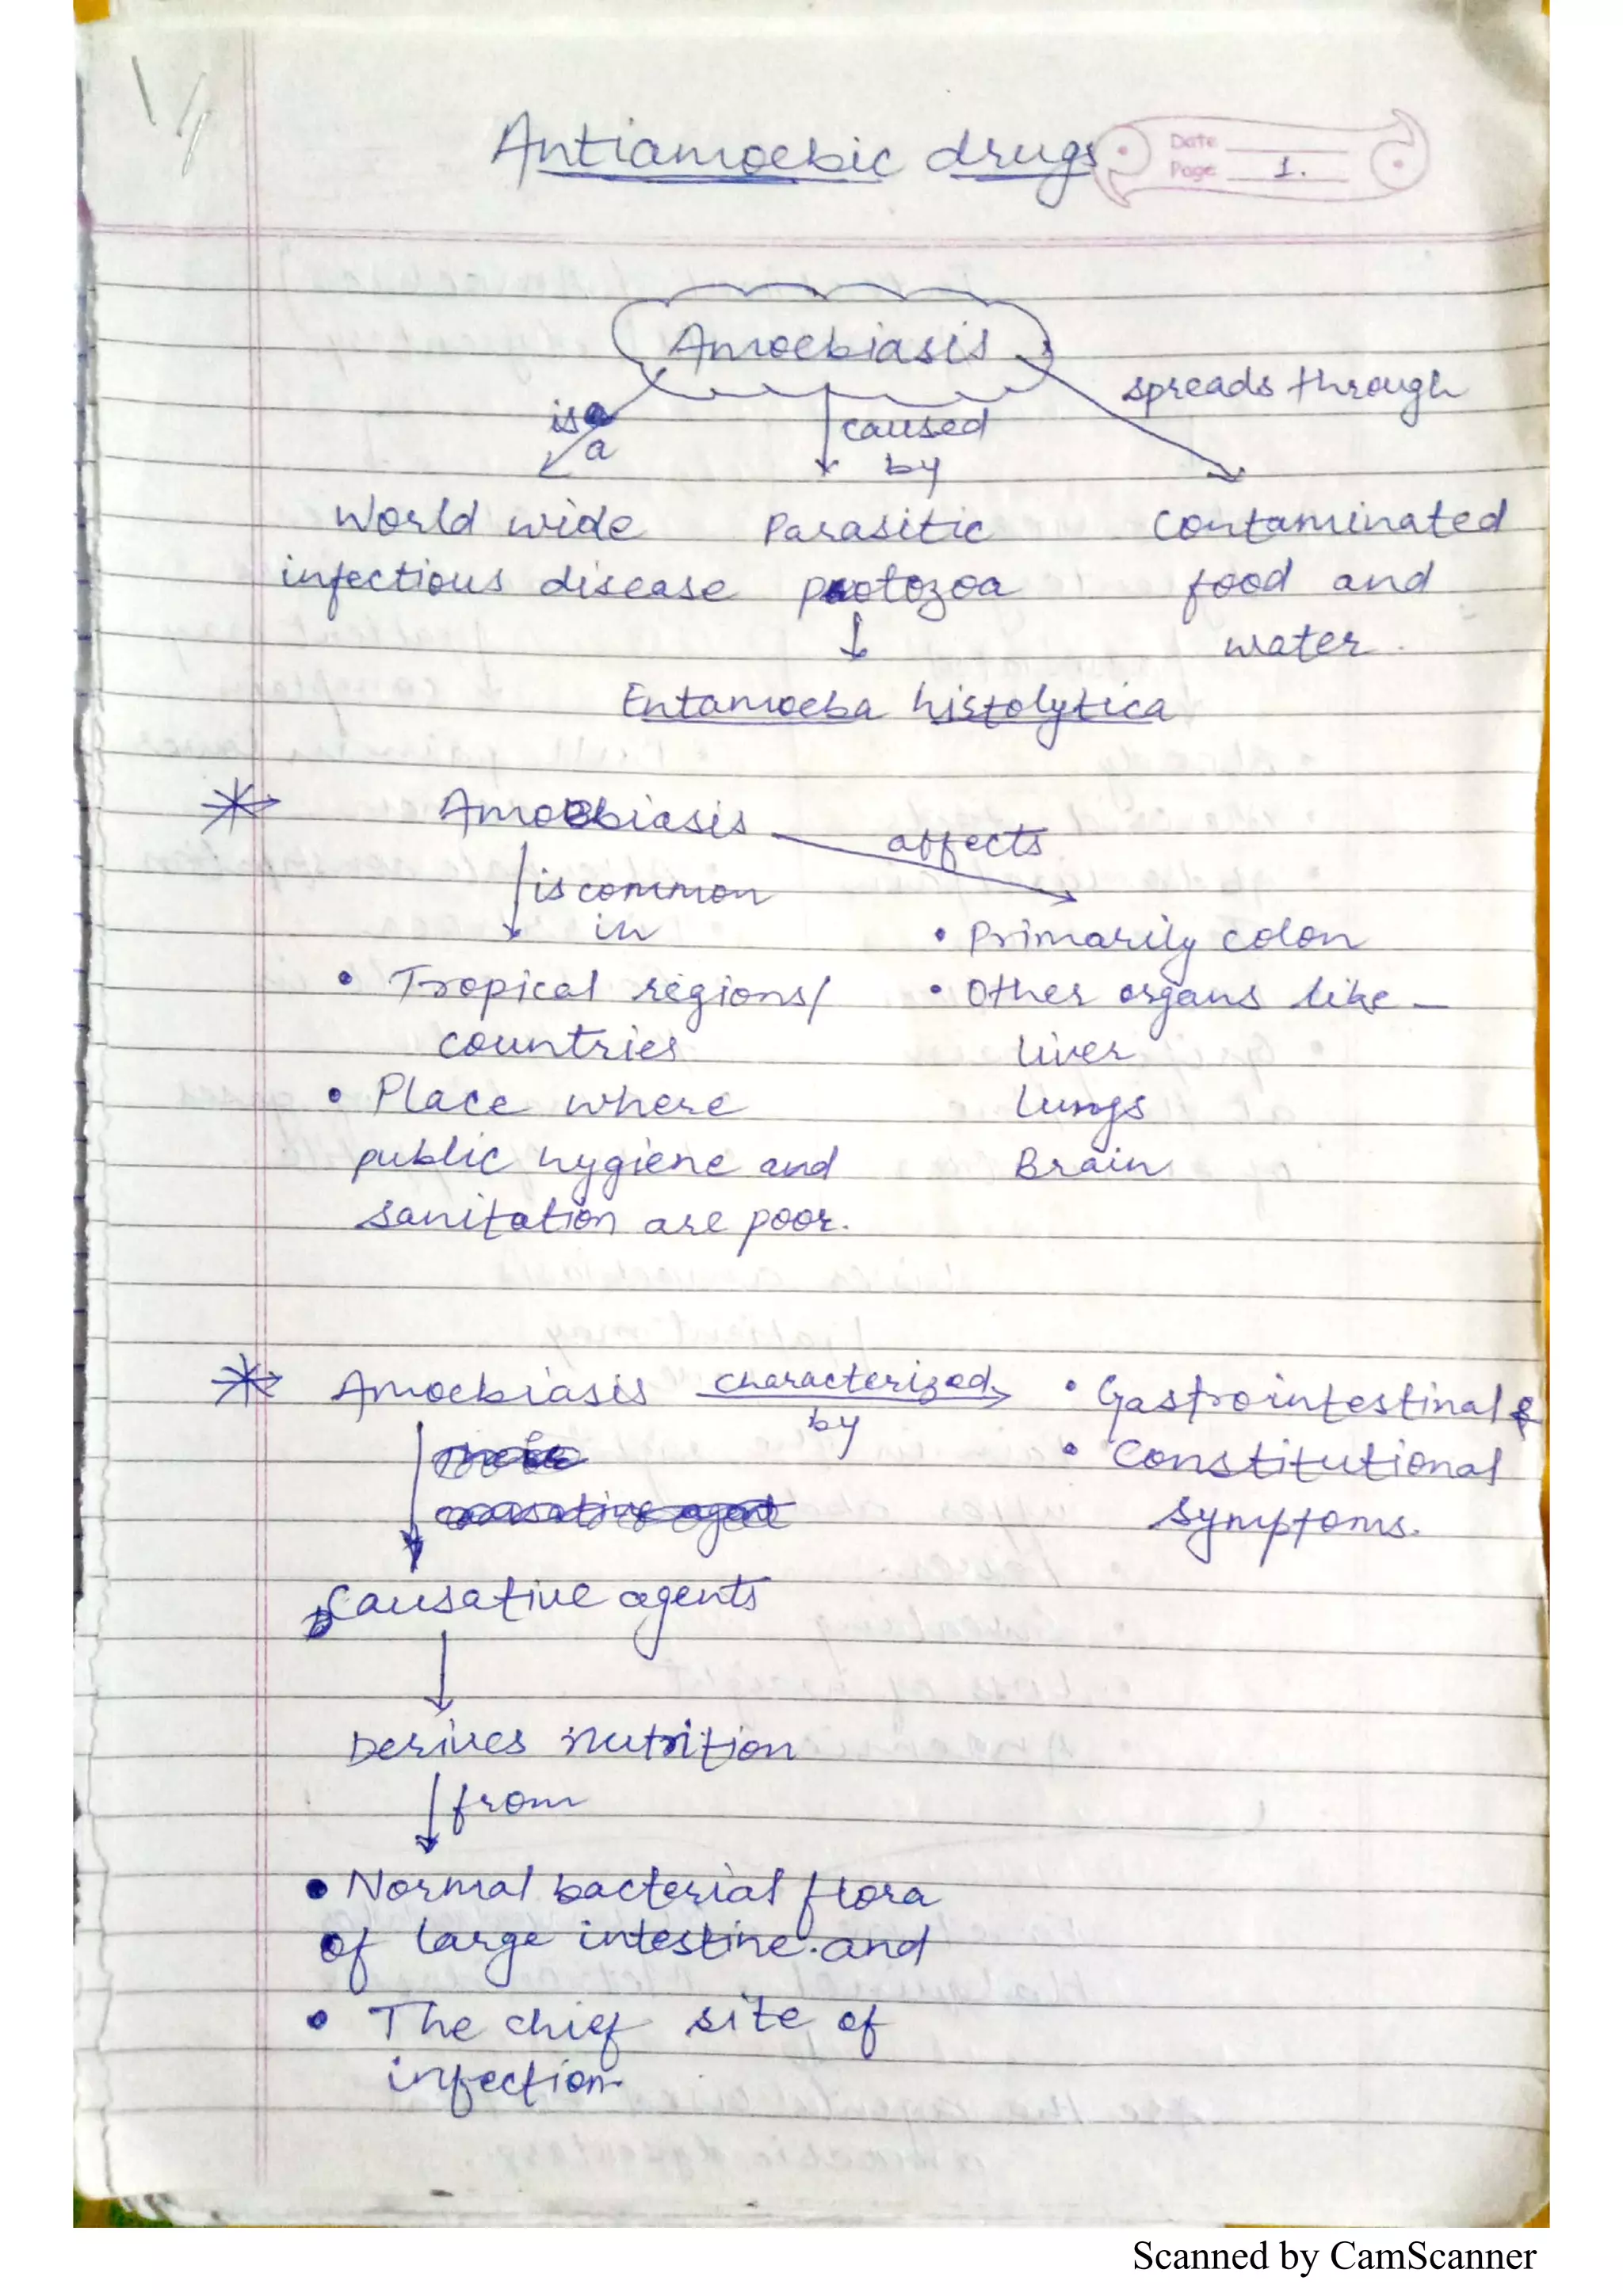 Antiamoebic drugs
Date
Page 1.
Amoebiasis
is a
caused by
spreads through
World wide infectious disease
Parasitic protozoa
Contaminated food and water.
Entamoeba histolytica
Amoebiasis
affects
is common in
• Tropical regions/
countries
• Place where
public hygiene and
sanitation are poor.
• Primarily colon
• Other organs like –
Liver
Lungs
Brain
Amoebiasis characterized by
• Gastrointestinal &
• Constitutional
symptoms.
Causative agents
Derives nutrition
from
• Normal bacterial flora
of large intestine and
• The chief site of
infection.
Scanned by CamScanner